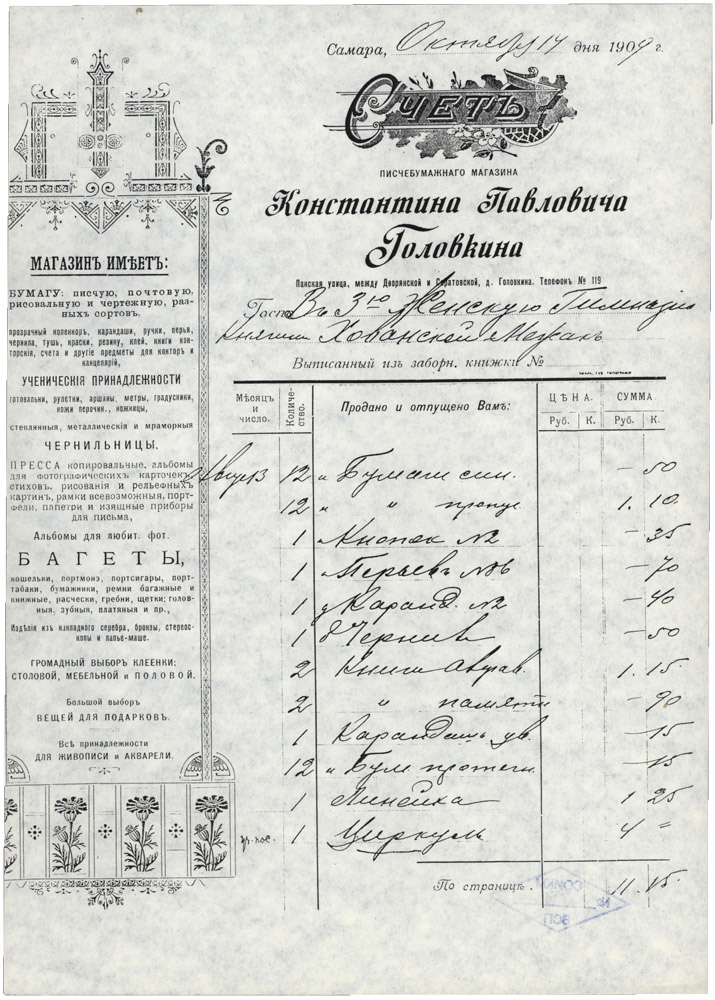 Самара, Октября 14 дня 1904 г.
СЧЕТЪ
ПИСЧЕБУМАЖНАГО МАГАЗИНА
Константина Павловича
Головкина
Панская улица, между Дворянской и Саратовской, д. Головкина. Телефонъ № 119
Въ 3ю Женскую Гимназiю
Княгини Хованской
Выписанный изъ заборн. книжки №
МАГАЗИНЪ ИМѢЕТЪ:
БУМАГУ: писчую, почтовую,
рисовальную и чертежную, раз-
ныхъ сортовъ.
прозрачный коленкоръ, карандаши, ручки, перья,
чернила, тушь, краски, резину, клей, книги кон-
торскія, счета и другіе предметы для конторъ и
канцелярій,
УЧЕНИЧЕСКІЯ ПРИНАДЛЕЖНОСТИ
готовальни, рулетки, аршины, метры, градусники,
ножи перочин., ножницы,
стеклянныя, металлическія и мраморныя
ЧЕРНИЛЬНИЦЫ.
ПРЕССА копировальные, альбомы
для фотографическихъ карточекъ,
стиховъ, рисованія и рельефныхъ
картинъ, рамки всевозможныя, порт-
фели, папетри и изящные приборы
для письма,
Альбомы для любит. фот.
БАГЕТЫ,
кошельки, портмонэ, портсигары, порт-
табаки, бумажники, ремни багажные и
книжные, расчески, гребни, щетки; голов-
ныя, зубныя, платяныя и пр.,
Издѣлія изъ накладного серебра, бронзы, стереос-
копы и папье-маше.
ГРОМАДНЫЙ ВЫБОРЪ КЛЕЕНКИ:
СТОЛОВОЙ, МЕБЕЛЬНОЙ и ПОЛОВОЙ.
Большой выборъ
ВЕЩЕЙ ДЛЯ ПОДАРКОВЪ.
Всѣ принадлежности
ДЛЯ ЖИВОПИСИ и АКВАРЕЛИ.
Мѣсяцъ и число. Количе-ство. Продано и отпущено Вамъ: ЦѢНА Руб. К. СУММА Руб. К.
Авг 13 12 Бумаги син. – 50
12 " " пропус. 1. 10.
1 Кнопок №2 – 35
1 Перьевъ №86 – 70
1 Каранд. №2 – 40
1 Черни – 50
2 Книги 1. 15.
2 " памяти – 90
1 Карандашъ цв. – 15
12 " Бум 15
1 Линейка 1 25
1 Циркуль 4 "
По страницѣ. 11. 15.